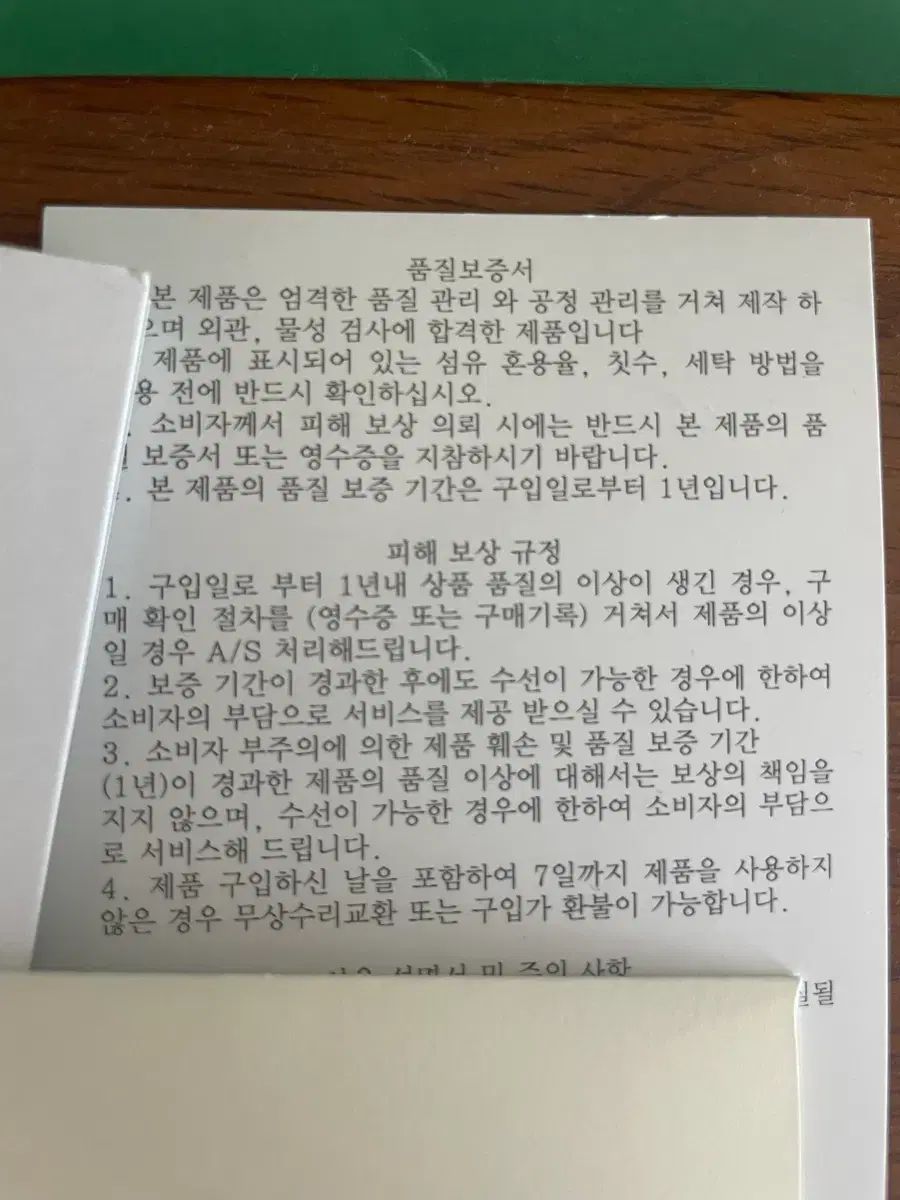 품질보증서
본 제품은 엄격한 품질 관리 와 공정 관리를 거쳐 제작 하
으며 외관, 물성 검사에 합격한 제품입니다
제품에 표시되어 있는 섬유 혼용율, 칫수, 세탁 방법을
용 전에 반드시 확인하십시오.
. 소비자께서 피해 보상 의뢰 시에는 반드시 본 제품의 품
보증서 또는 영수증을 지참하시기 바랍니다.
. 본 제품의 품질 보증 기간은 구입일로부터 1년입니다.
피해 보상 규정
1. 구입일로 부터 1년내 상품 품질의 이상이 생긴 경우, 구
매 확인 절차를 (영수증 또는 구매기록) 거쳐서 제품의 이상
일 경우 A/S 처리해드립니다.
2. 보증 기간이 경과한 후에도 수선이 가능한 경우에 한하여
소비자의 부담으로 서비스를 제공 받으실 수 있습니다.
3. 소비자 부주의에 의한 제품 훼손 및 품질 보증 기간
(1년)이 경과한 제품의 품질 이상에 대해서는 보상의 책임을
지지 않으며, 수선이 가능한 경우에 한하여 소비자의 부담으
로 서비스해 드립니다.
4. 제품 구입하신 날을 포함하여 7일까지 제품을 사용하지
않은 경우 무상수리교환 또는 구입가 환불이 가능합니다.
설명서 및 주의 사항
될